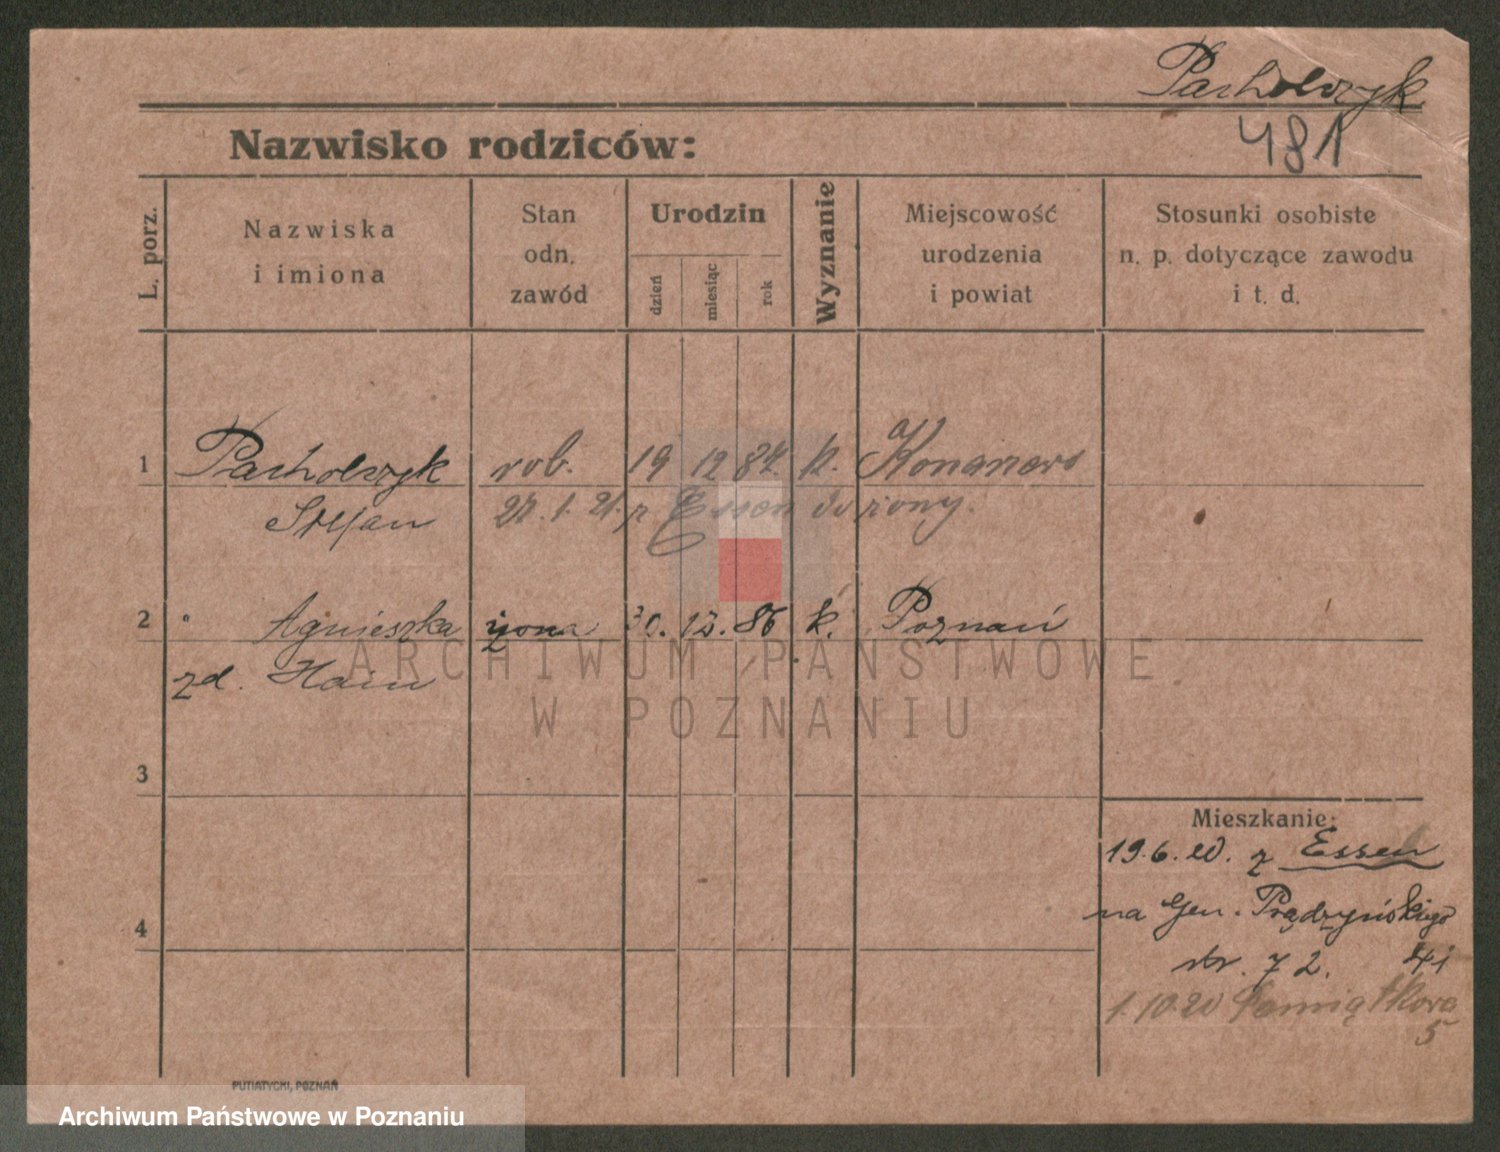 Pacholczyk
481
Nazwisko rodziców:
L. porz.
Nazwiska
i imiona
Stan
odn.
zawód
Urodzin
dzień
miesiąc
rok
Wyznanie
Miejscowość
urodzenia
i powiat
Stosunki osobiste
n. p. dotyczące zawodu
i t. d.
1 Pacholczyk rob. 19 12 87. k. Konarzewo
Stefan 27.1.21. z Essen do żony.
2 " Agnieszka żona 30. 12. 86 k. Poznań
zd. Hain
3
4
Mieszkanie:
19.6.20. z Essen
na Gen. Prądzyńskiego
str. 72.
1.10.20
5
PUTIATYCKI, POZNAŃ
ARCHIWUM PAŃSTWOWE
W POZNANIU
Archiwum Państwowe w Poznaniu